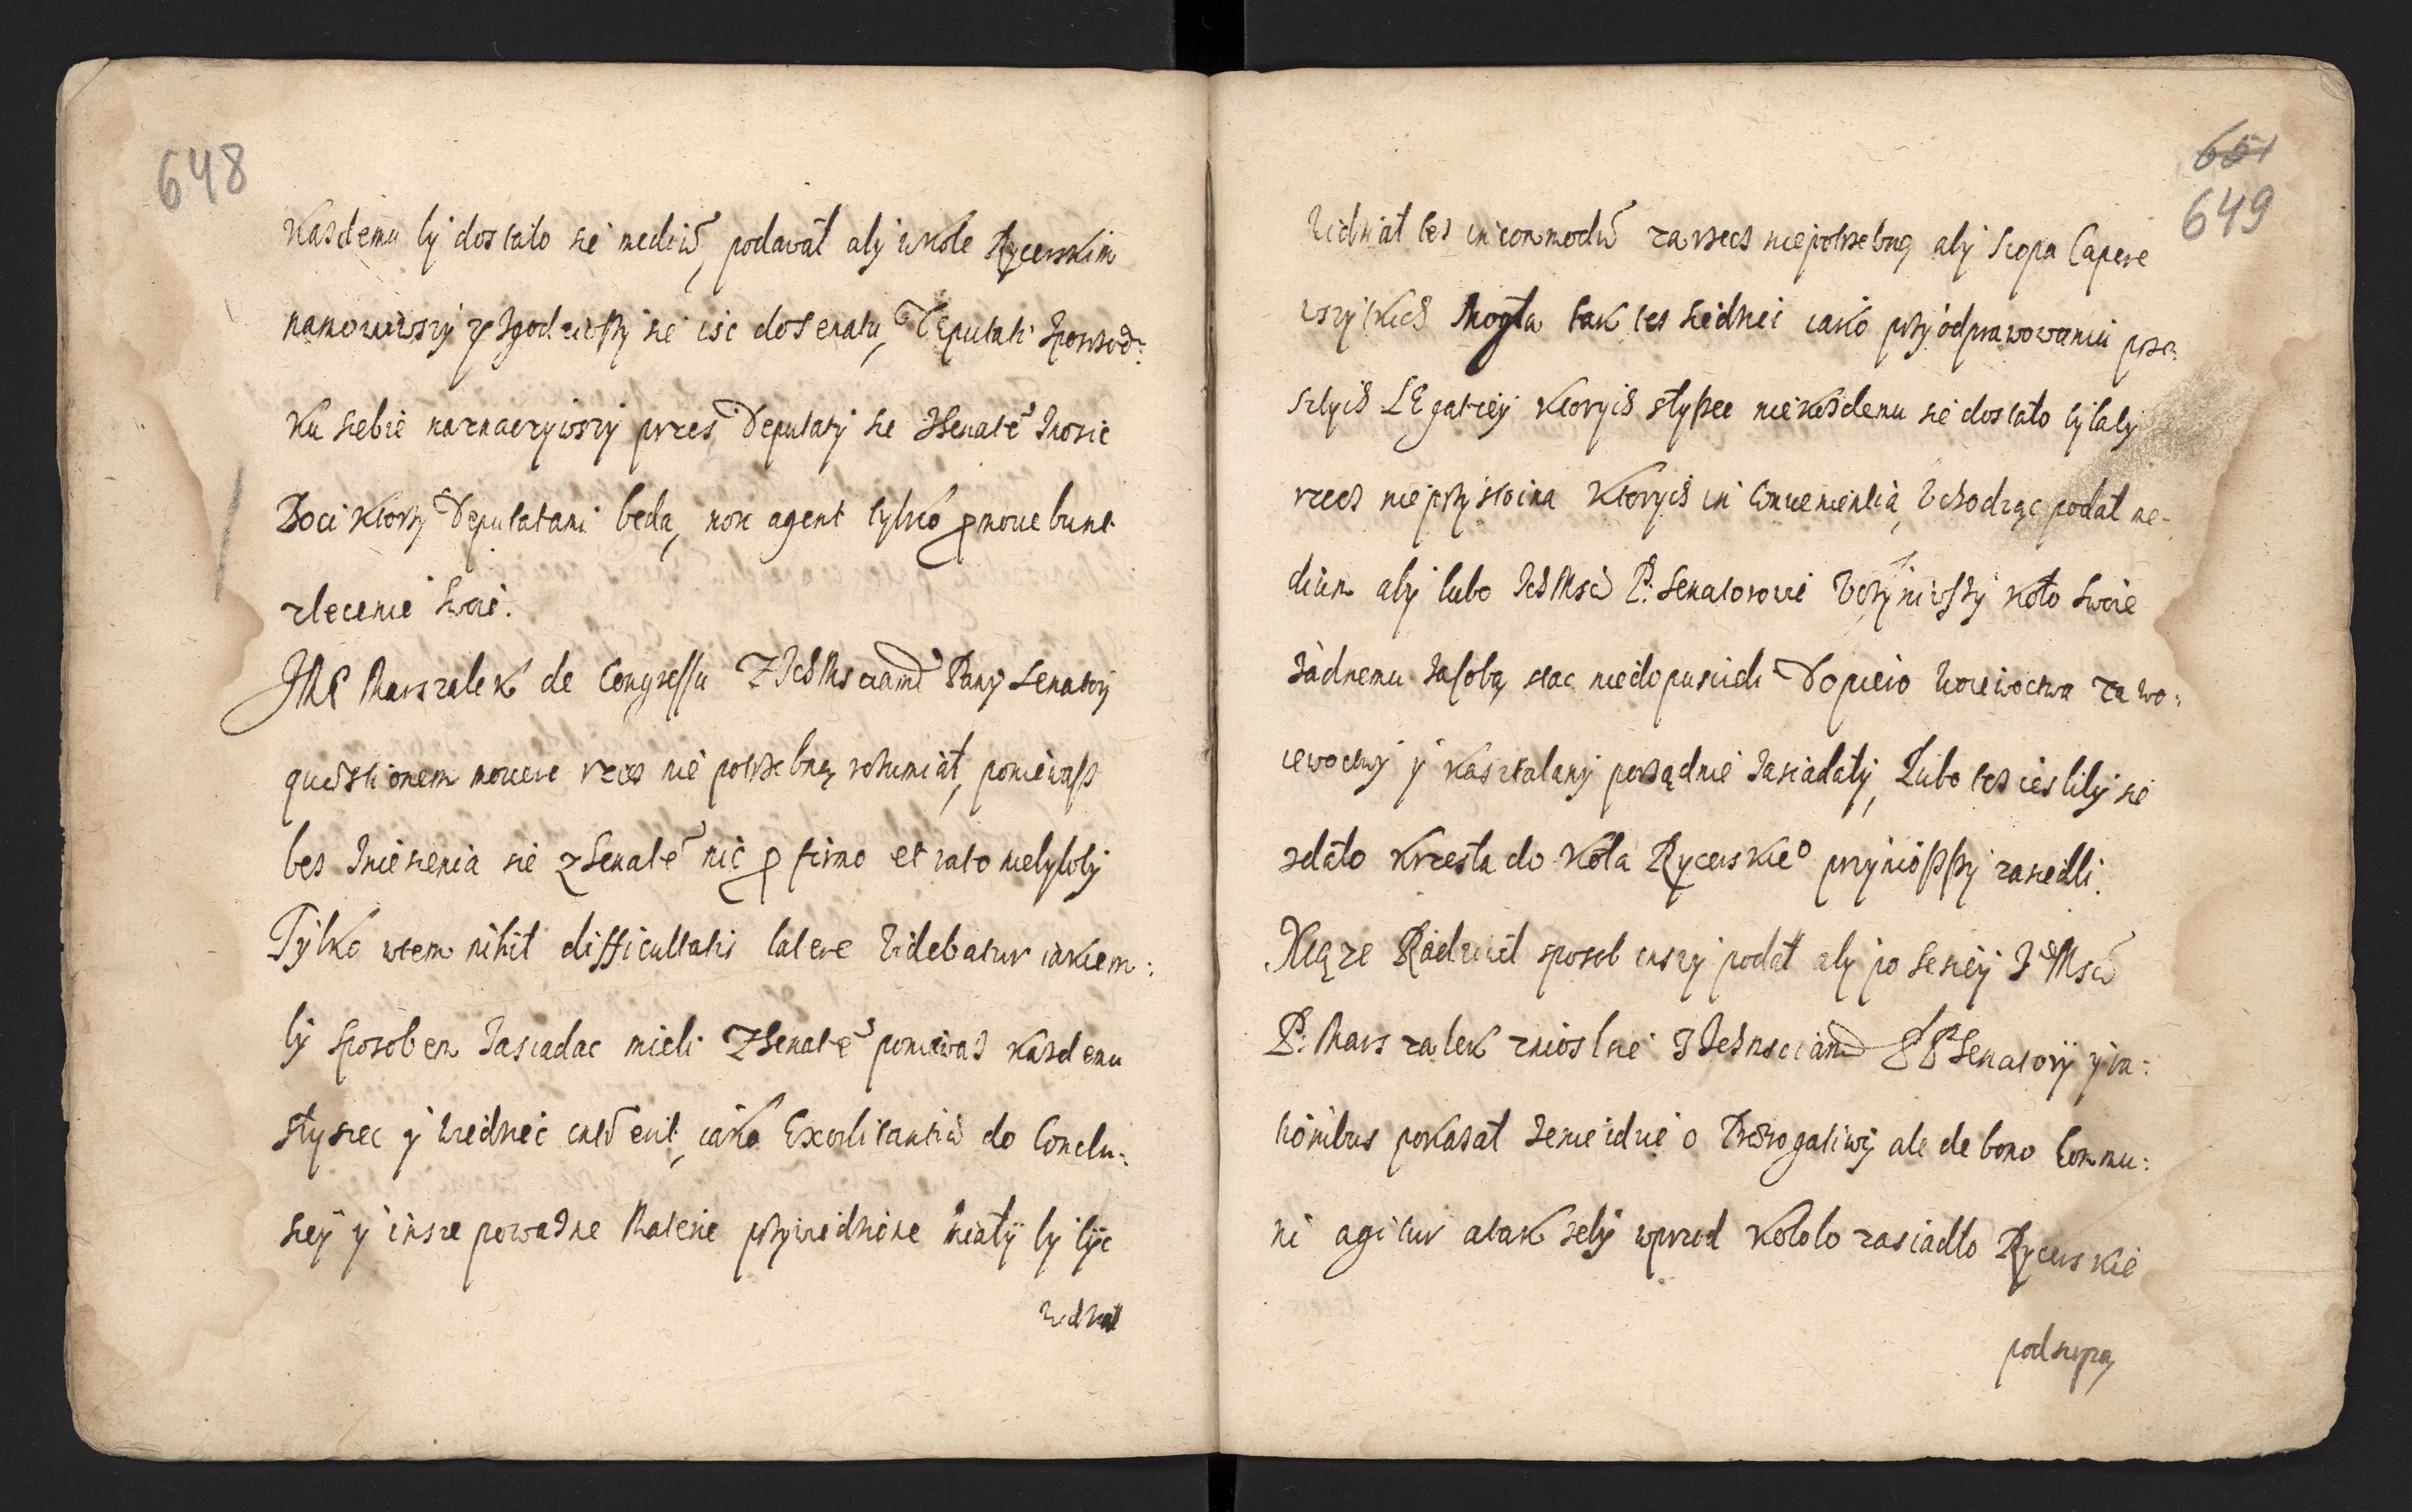 648
Kazdemu by dostało się mediū, podawał aby w kole Rycerskim
namowiwszy y zgodziwszy się iść do Senatu, Deputati zposrzod:
ku siebie naznaczywszy przes Deputaty se z Senatē znosić
Boci ktorzy Deputatami beda, non agent tylko p̱mouebunt
zlecenie swoie.
JMP Marszalek de Congressu z IchMsciami Pany Senatory
quæstionem mouere rzecz nie potrzebną rozumiał, poniewasz
bez zniesienia sie z Senatē nic p̱ firmo et rato niebyłoby
Tylko wtem nihil difficultatis latere videbatur iakiem:
by sposobem zasiadac mieli z Senatē poniewaz kazdemu
słyszec y wiedziec int̄erit, iako Exorbitantiæ do Conclu:
siey y insze powazne Materie przywiedzione miały by być
widział
651
649
Widział tez incommodū za rzecz niepotrzebną aby szopa Capere
wszytkich Mogła tak tez siedziec iako przy odprawowaniu prze:
szlych LEgatiey ktorych słyszec nie kozdemu się dostało byłaby
rzecz nieprzystoina ktorych inconuenientia, Vchodząc podał me-
dium aby lubo IchMsc P. Senatorowie Vczyniwszy koło swoie
zadnemu za sobą stac niedopuscieli Dopiero Woiewoctwa za wo:
iewodwy y kasztalany porządnie zasiadały, Lubo tez iesliby się
zdało krzesla do Koła Rycerskieo przyniosszy zasiedli.
Xiąze Radziwil sposob inszy podał aby po sessiey JMsc
P. Marszalek zniosł sie z Ichmsciami PP Senatory y ra:
tionibus pokazał ze nie idzie o Prærogatiwy ale de bono Commu:
ni agitur a tak zeby wprzod Kololo zasiadło Rycerskie
pod szopą